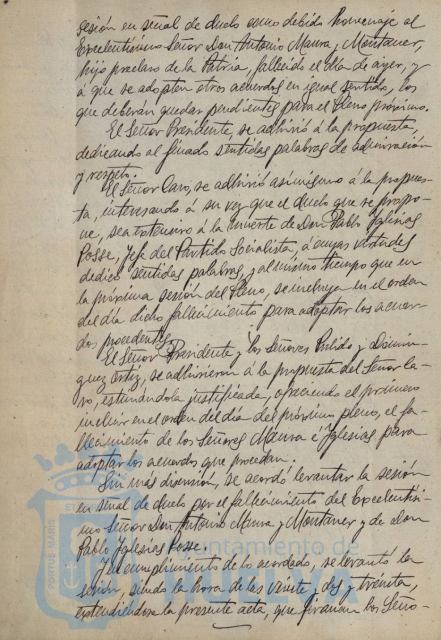 sesión en señal de duelo como debido homenaje al
Excelentísimo Señor Don Antonio Maura y Montaner,
hijo preclaro de la Patria, fallecido el día de ayer, y
á que se adopten otros acuerdos en igual sentido, los
que deberán quedar pendientes para el Pleno próximo.
El Señor Presidente, se adhirió á la propuesta,
dedicando al finado sentidas palabras de admiración
y respeto.
El Señor Caro, se adhirió asimismo á la propues-
ta, interesando á su vez que el duelo que se propo-
ne, sea extensivo á la muerte de Don Pablo Iglesias
Posse, Jefe del Partido Socialista, á cuyas virtudes
dedicó sentidas palabras, y al mismo tiempo que en
la próxima sesión del Pleno, se incluya en el orden
del día dicho fallecimiento para adoptar los acuer-
dos procedentes.
El Señor Presidente y los Señores Pulido y Domín-
guez Ortiz, se adhirieron á la propuesta del Señor Ca-
ro, estimándola justificada, ofreciendo el primero
incluir en el orden del día del próximo pleno, el fa-
llecimiento de los Señores Maura é Iglesias para
adoptar los acuerdos que procedan.
Sin más discusión, se acordó levantar la sesión
en señal de duelo por el fallecimiento del Excelentísi-
mo Señor Don Antonio Maura y Montaner y de Don
Pablo Iglesias Posse.
Y en cumplimiento de lo acordado, se levantó la
sesión, siendo la hora de las veinte y dos y treinta,
extendiéndose la presente acta, que firman los Seño-
PORTUS MARIS
ET
Ayuntamiento de